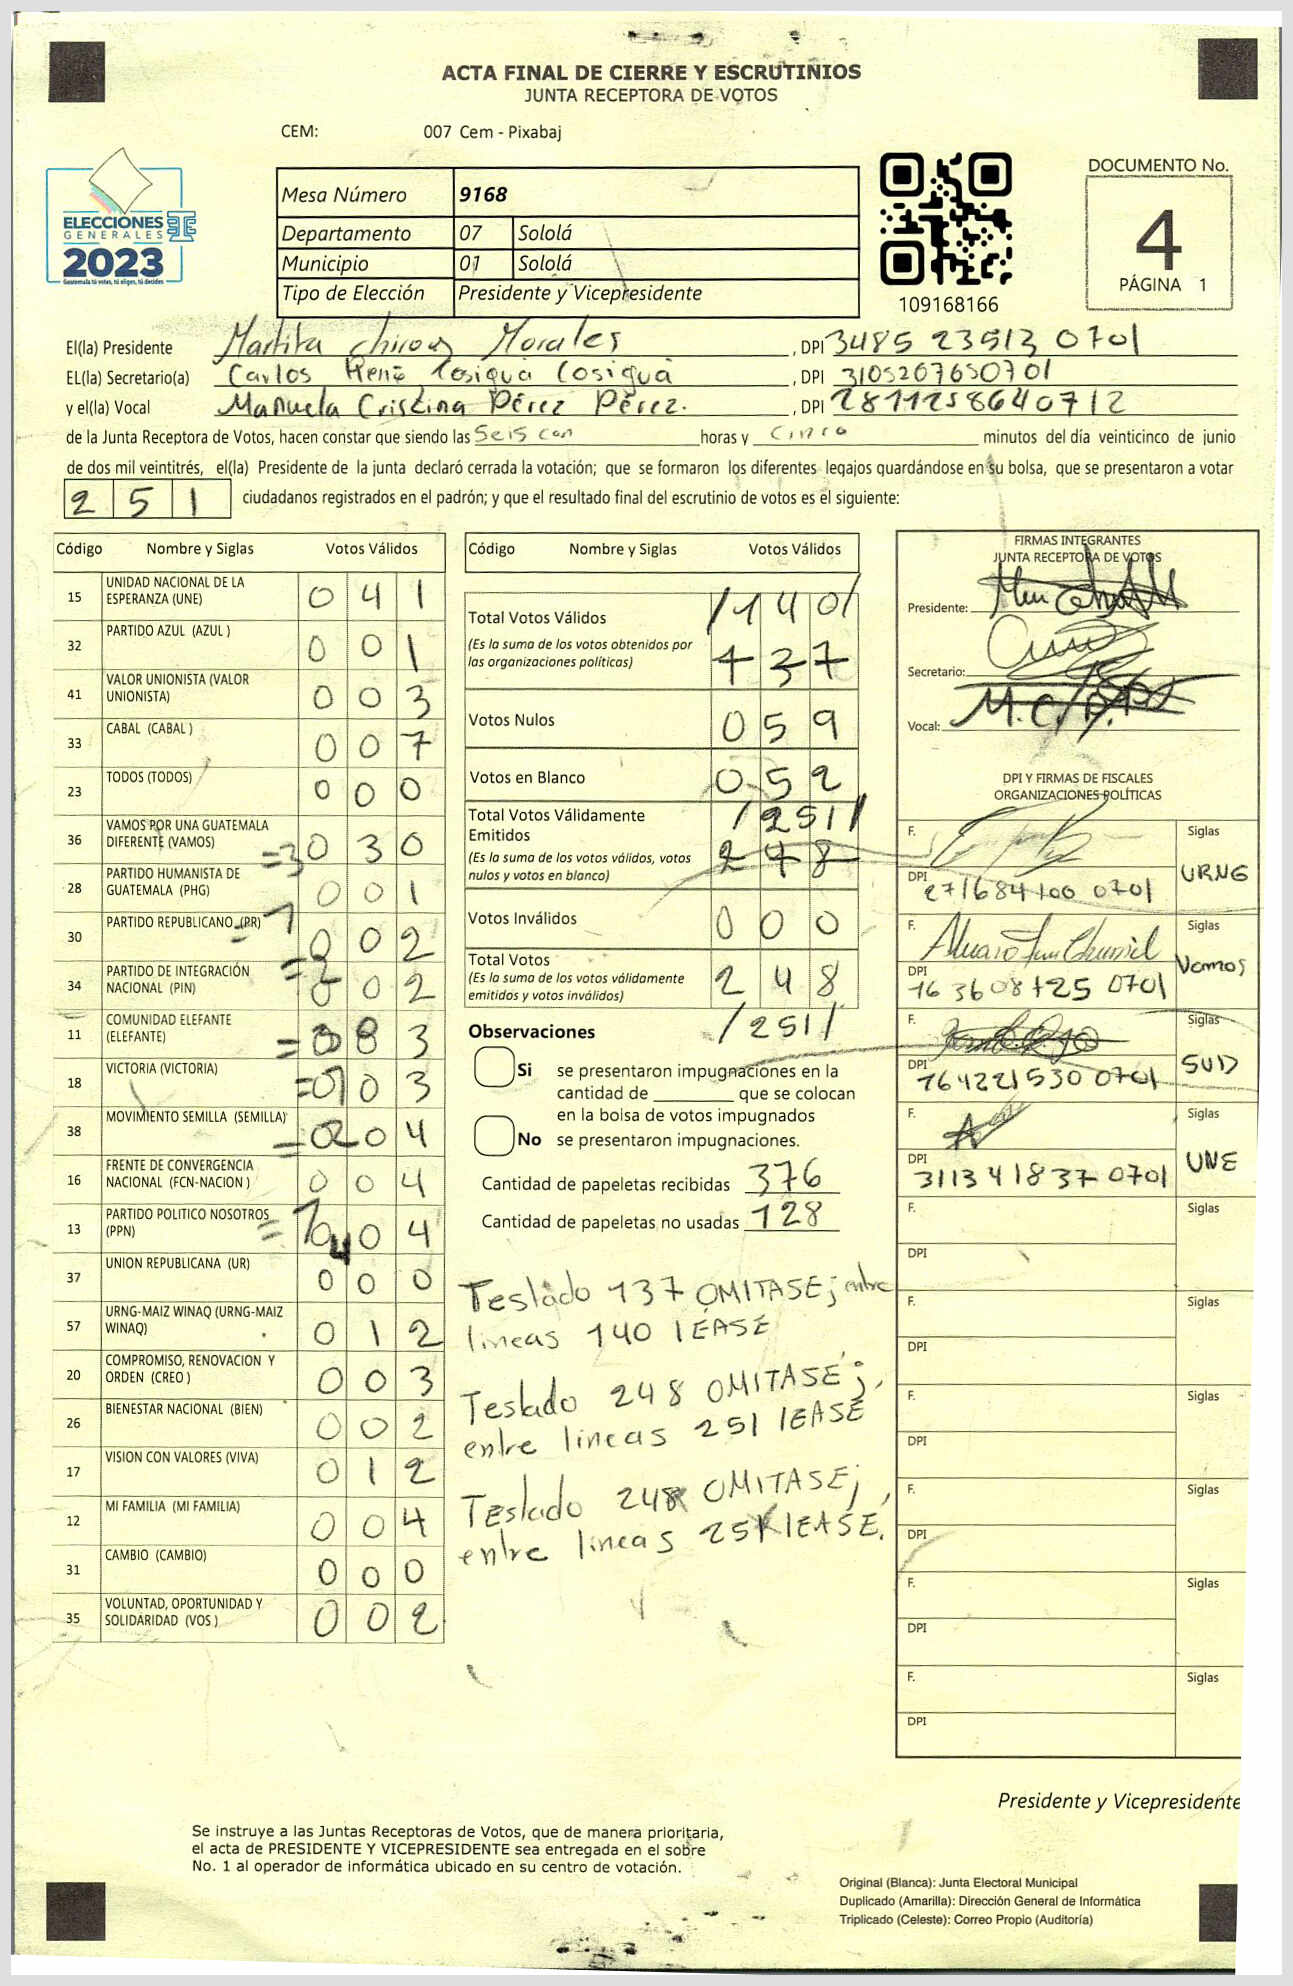 ACTA FINAL DE CIERRE Y ESCRUTINIOS
JUNTA RECEPTORA DE VOTOS
CEM: 007 Cem - Pixabaj
ELECCIONES
GENERALES
2023
Guatemala tú votas, tú eliges, tú decides
Mesa Número 9168
Departamento 07 Sololá
Municipio 01 Sololá
Tipo de Elección Presidente y Vicepresidente
109168166
DOCUMENTO No.
4
PÁGINA 1
El(la) Presidente Maritta Morales , DPI 3485 23513 0701
EL(la) Secretario(a) Carlos René Cosigua Cosigua , DPI 3105207650701
y el(la) Vocal Manuela Cristina Pérez Pérez. , DPI 2811258640712
de la Junta Receptora de Votos, hacen constar que siendo las Seis con horas y Cinco minutos del día veinticinco de junio
de dos mil veintitrés, el(la) Presidente de la junta declaró cerrada la votación; que se formaron los diferentes legajos guardándose en su bolsa, que se presentaron a votar
251 ciudadanos registrados en el padrón; y que el resultado final del escrutinio de votos es el siguiente:
Código Nombre y Siglas Votos Válidos
15 UNIDAD NACIONAL DE LA ESPERANZA (UNE) 041
32 PARTIDO AZUL (AZUL ) 001
41 VALOR UNIONISTA (VALOR UNIONISTA) 003
33 CABAL (CABAL ) 007
23 TODOS (TODOS) 000
36 VAMOS POR UNA GUATEMALA DIFERENTE (VAMOS) =3 030
28 PARTIDO HUMANISTA DE GUATEMALA (PHG) 001
30 PARTIDO REPUBLICANO (PR) 002
34 PARTIDO DE INTEGRACIÓN NACIONAL (PIN) = 002
11 COMUNIDAD ELEFANTE (ELEFANTE) = 083
18 VICTORIA (VICTORIA) = 003
38 MOVIMIENTO SEMILLA (SEMILLA) = 004
16 FRENTE DE CONVERGENCIA NACIONAL (FCN-NACION ) 004
13 PARTIDO POLITICO NOSOTROS (PPN) = 004
37 UNION REPUBLICANA (UR) 000
57 URNG-MAIZ WINAQ (URNG-MAIZ WINAQ) 012
20 COMPROMISO, RENOVACION Y ORDEN (CREO ) 003
26 BIENESTAR NACIONAL (BIEN) 002
17 VISION CON VALORES (VIVA) 012
12 MI FAMILIA (MI FAMILIA) 004
31 CAMBIO (CAMBIO) 000
35 VOLUNTAD, OPORTUNIDAD Y SOLIDARIDAD (VOS ) 002
Código Nombre y Siglas Votos Válidos
Total Votos Válidos /140/
(Es la suma de los votos obtenidos por las organizaciones políticas) 137
Votos Nulos 059
Votos en Blanco 052
Total Votos Válidamente Emitidos /251/
(Es la suma de los votos válidos, votos nulos y votos en blanco) 248
Votos Inválidos 000
Total Votos
(Es la suma de los votos válidamente emitidos y votos inválidos) 248
/251/
Observaciones
Si se presentaron impugnaciones en la
cantidad de ________ que se colocan
en la bolsa de votos impugnados
No se presentaron impugnaciones.
Cantidad de papeletas recibidas 376
Cantidad de papeletas no usadas 128
Testado 137 OMITASE; entre
lineas 140 lEASE
Testado 248 OMITASE;
entre lineas 251 lEASE
Testado 248 OMITASE;
entre lineas 251 lEASE.
FIRMAS INTEGRANTES
JUNTA RECEPTORA DE VOTOS
Presidente:
Secretario:
Vocal: M.C.P.P.
DPI Y FIRMAS DE FISCALES
ORGANIZACIONES POLÍTICAS
F. Siglas
DPI 271684100 0701 URNG
F. Siglas
DPI 163608125 0701 Vamos
F. Siglas
DPI 164221530 0701
F. Siglas
DPI 311341837 0701 UNE
F. Siglas
DPI
F. Siglas
DPI
F. Siglas
DPI
F. Siglas
DPI
F. Siglas
DPI
F. Siglas
DPI
Presidente y Vicepresidente
Se instruye a las Juntas Receptoras de Votos, que de manera prioritaria,
el acta de PRESIDENTE Y VICEPRESIDENTE sea entregada en el sobre
No. 1 al operador de informática ubicado en su centro de votación.
Original (Blanca): Junta Electoral Municipal
Duplicado (Amarilla): Dirección General de Informática
Triplicado (Celeste): Correo Propio (Auditoría)